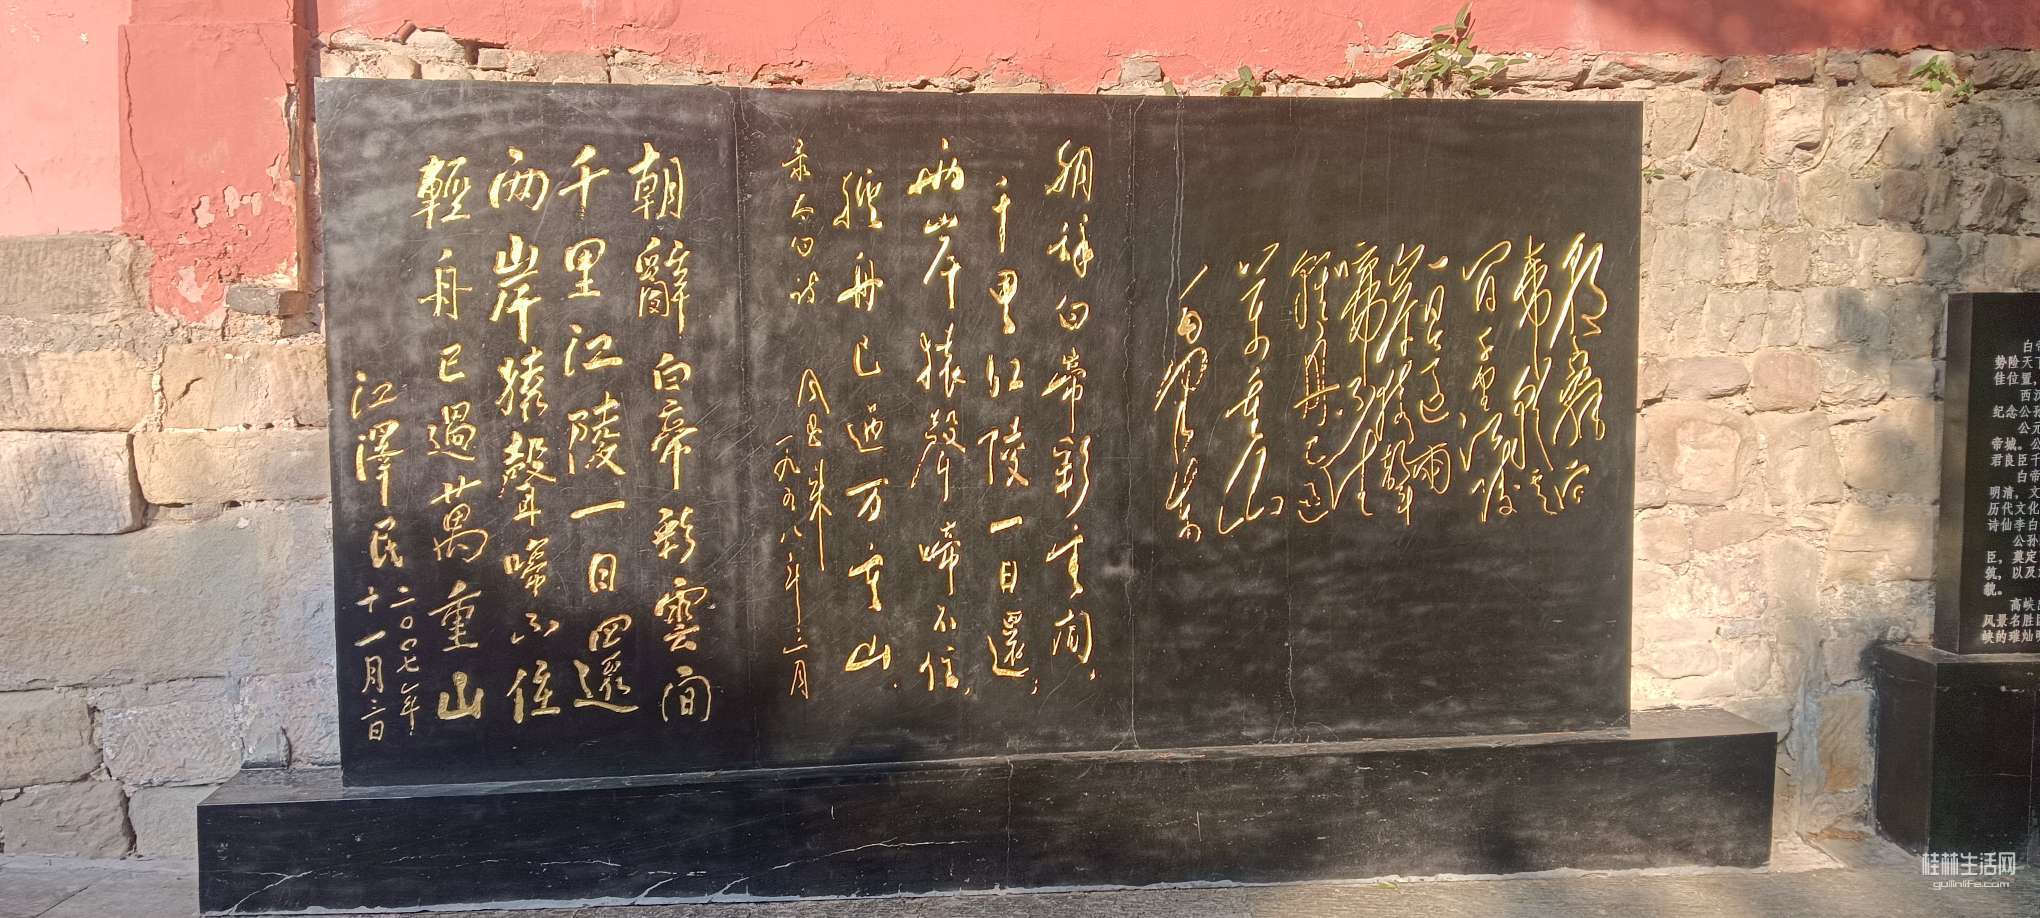 朝辞白
帝彩云
间千里江陵
一日还两
岸猿聲
啼不住
輕舟已过
万重山
毛泽东
朝辞白帝彩云间，
千里江陵一日還；
两岸猿聲啼不住，
轻舟已过万重山．
录李白诗
周恩来
一九五八年三月
朝辭白帝彩雲間
千里江陵一日還
两岸猿聲啼不住
輕舟已過萬重山
江澤民
二〇〇七年
十一月三日
白帝
势险天下
佳位置，
西汉
纪念公孙
公元
帝城。公
君良臣千
白帝
明清，文
历代文化
诗仙李白
公孙
臣，奠定
筑，以及
貌。
高峡
风景名胜区
峡的璀灿
桂林生活网
guilinlife.com